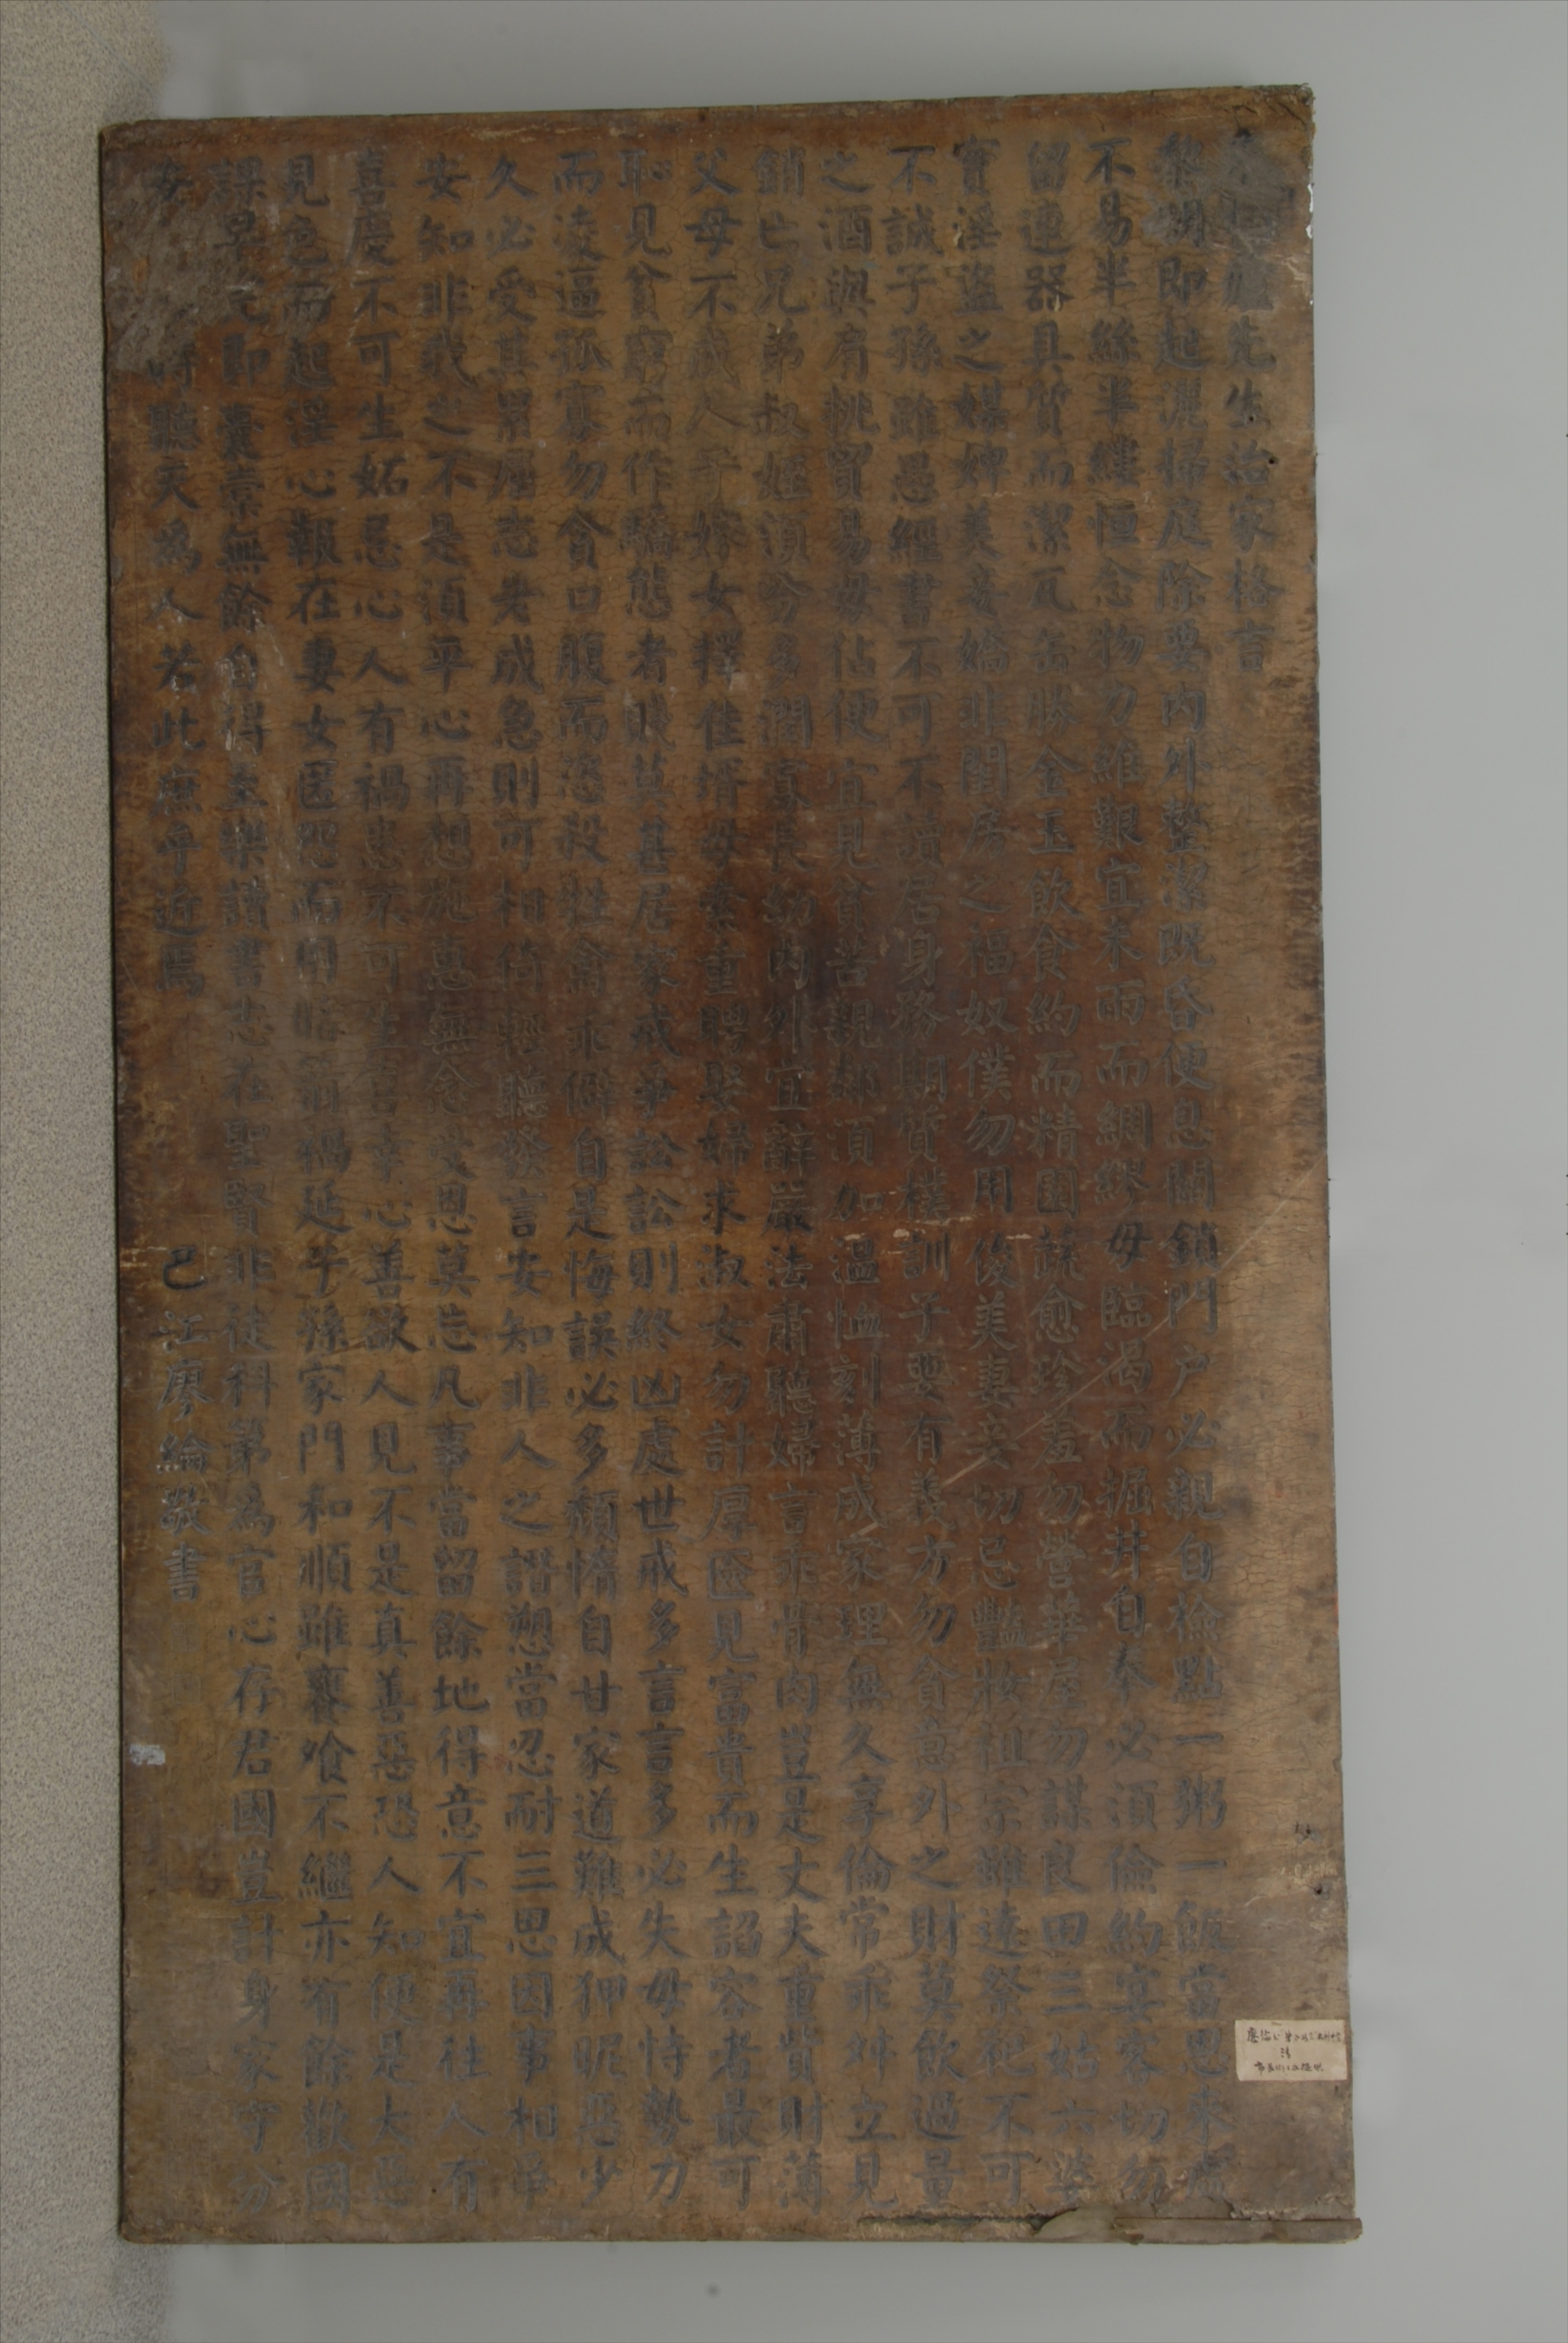 先生治家格言
黎明即起灑掃庭除要內外整潔既昏便息關鎖門戶必親自檢點一粥一飯當思來處
不易半絲半縷恒念物力維艱宜未雨而綢繆毋臨渴而掘井自奉必須儉約宴客切勿
留連器具質而潔瓦缶勝金玉飲食約而精園蔬愈珍羞勿營華屋勿謀良田三姑六婆
實淫盜之媒婢美妾嬌非閨房之福奴僕勿用俊美妻妾切忌豔妝祖宗雖遠祭祀不可
不誠子孫雖愚經書不可不讀居身務期質樸訓子要有義方勿貪意外之財莫飲過量
之酒與肩挑貿易毋佔便宜見貧苦親鄰須加溫恤刻薄成家理無久享倫常乖舛立見
銷亡兄弟叔姪須分多潤寡長幼內外宜辭嚴法肅聽婦言乖骨肉豈是丈夫重貲財薄
父母不成人子嫁女擇佳婿毋索重聘娶婦求淑女勿計厚匳見富貴而生諂容者最可
恥見貧窮而作驕態者賤莫甚居家戒爭訟訟則終凶處世戒多言言多必失毋恃勢力
而凌逼孤寡勿貪口腹而恣殺牲禽乖僻自是悔誤必多頹惰自甘家道難成狎昵惡少
久必受其累屈志老成急則可相倚輕聽發言安知非人之譖愬當忍耐三思因事相爭
安知非我之不是須平心再想施惠無念受恩莫忘凡事當留餘地得意不宜再往人有
喜慶不可生妬忌心人有禍患不可生喜幸心善欲人見不是真善惡恐人知便是大惡
見色而起淫心報在妻女匿怨而用暗箭禍延子孫家門和順雖饔飧不繼亦有餘歡國
課早完即囊橐無餘自得至樂讀書志在聖賢非徒科第為官心存君國豈計身家守分
安 時聽天為人若此庶乎近焉
己江廖綸敬書